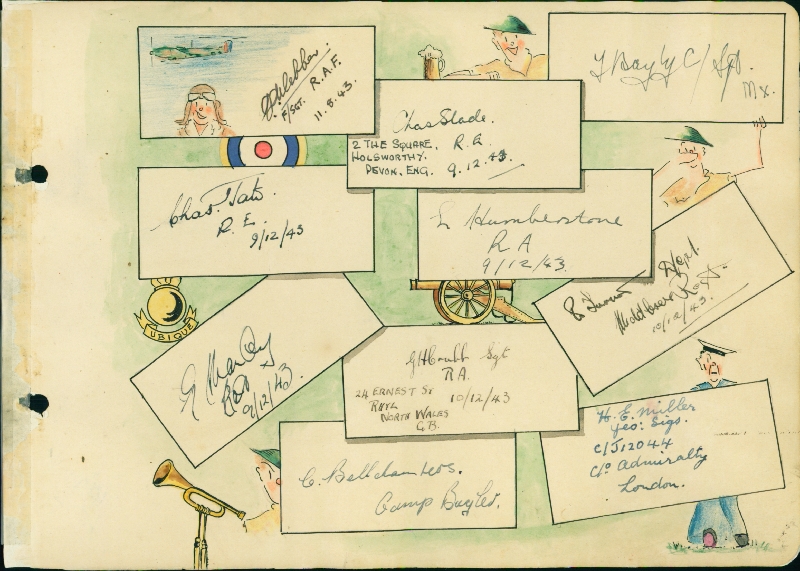 F/Sgt. R.A.F.
11.8.43.
Bayly C/Sgt.
Mx.
Chas Slade.
2 THE SQUARE, R.E.
HOLSWORTHY.
DEVON, ENG. 9.12.43.
Chas. Tate.
R.E.
9/12/43
L Humberstone
RA
9/12/43.
10/12/43.
UBIQUE
9/12/43.
Sgt
RA.
24 ERNEST ST 10/12/43
RHYL
NORTH WALES
G.B.
H. E. Miller
Yeo: Sigs.
C/J12044
C/o Admiralty
London.
C. Bellchambers.
Camp Bugler.